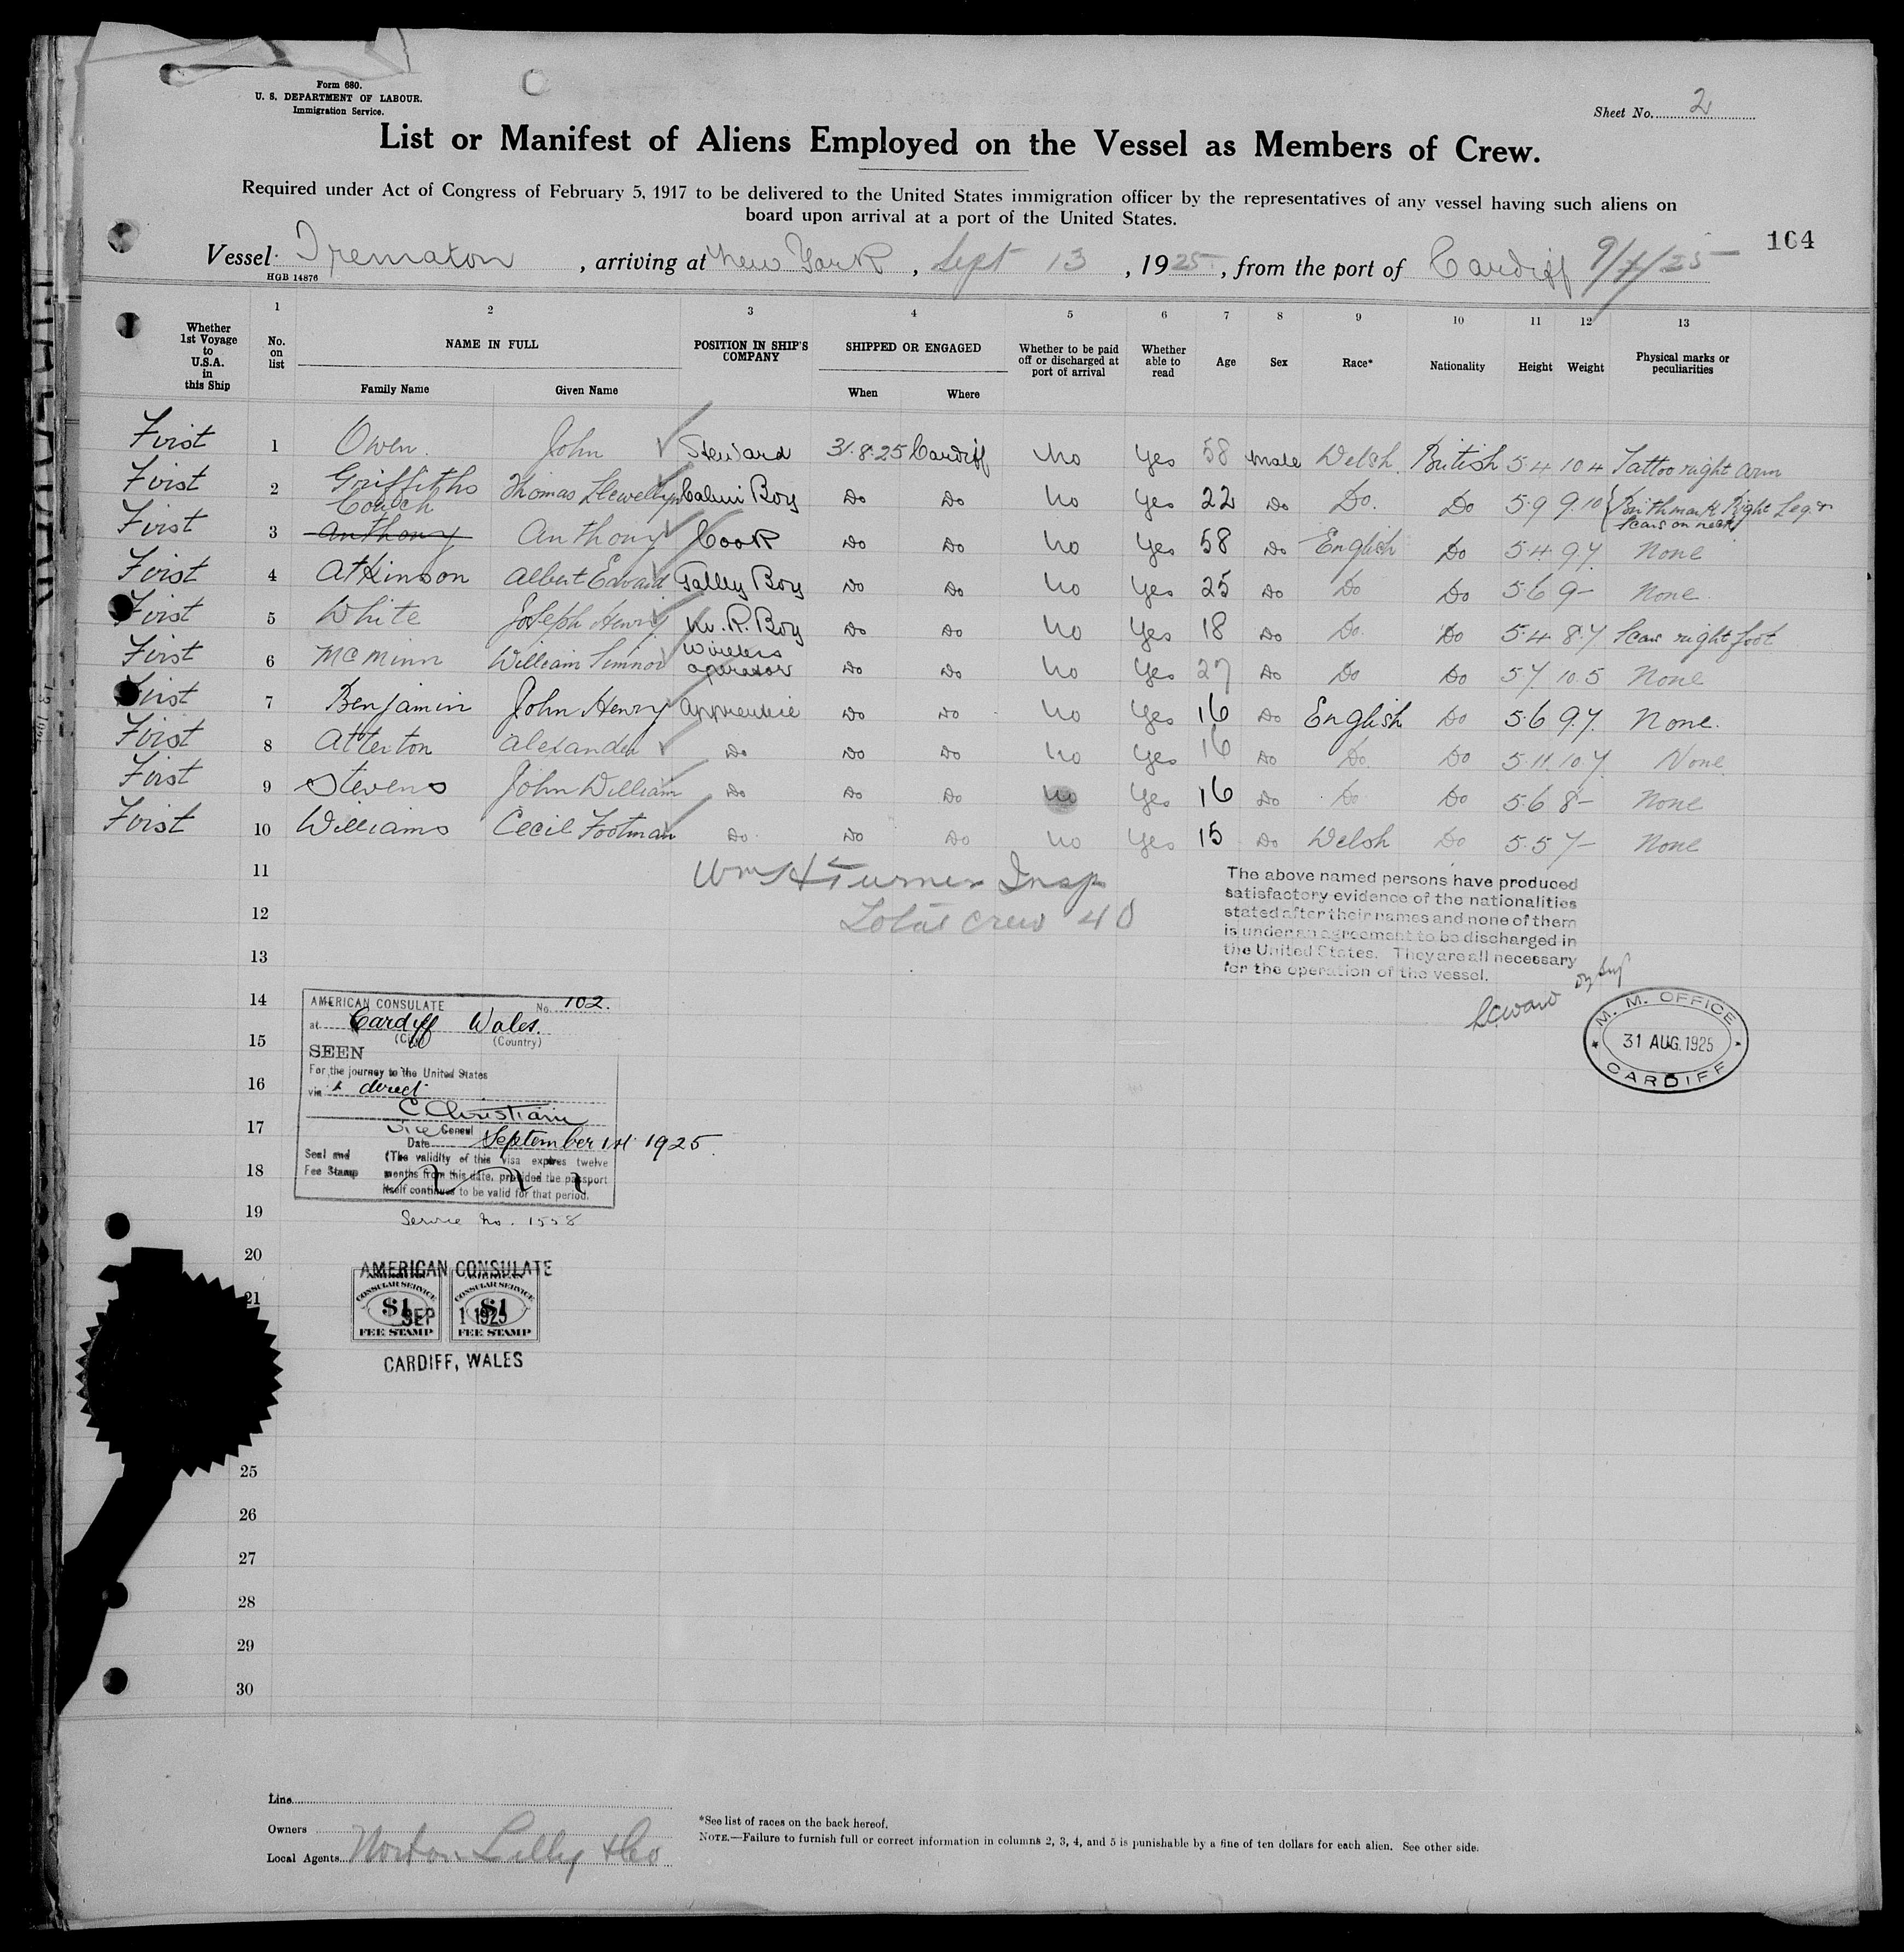 Form 680.
U. S. DEPARTMENT OF LABOUR.
Immigration Service.
Sheet No. 2
List or Manifest of Aliens Employed on the Vessel as Members of Crew.
Required under Act of Congress of February 5, 1917 to be delivered to the United States immigration officer by the representatives of any vessel having such aliens on
board upon arrival at a port of the United States.
164
Vessel Trematon, arriving at New York, Sept 13, 1925, from the port of Cardiff 9/1/25
HGB 14876
1 2 3 4 5 6 7 8 9 10 11 12 13
Whether 1st Voyage to U.S.A. in this Ship
No. on list
NAME IN FULL
Family Name
Given Name
POSITION IN SHIP'S COMPANY
SHIPPED OR ENGAGED
When
Where
Whether to be paid off or discharged at port of arrival
Whether able to read
Age
Sex
Race*
Nationality
Height
Weight
Physical marks or peculiarities
First 1 Owen. John Steward 31.8.25 Cardiff No Yes 58 Male Welsh British 5.4 10.4 Tattoo right arm
First 2 Griffiths Thomas Llewellyn Cabin Boy Do Do No Yes 22 Do Do. Do 5.9 9.10 Birthmark Right Leg & Scars on neck
First 3 Couch Anthony Anthony Cook Do Do No Yes 58 Do English Do 5.4 9.7 None
First 4 Atkinson Albert Edward Galley Boy Do Do No Yes 25 Do Do Do 5.6 9- None
First 5 White Joseph Henry M.R. Boy Do Do No Yes 18 Do Do. Do 5.4 8.7 Scar right foot
First 6 McMinn William Wireless operator Do Do No Yes 27 Do Do Do 5.7 10.5 None
First 7 Benjamin John Henry Apprentice Do Do No Yes 16 Do English Do 5.6 9.7. None.
First 8 Atterton Alexander Do Do Do No Yes 16 Do Do Do 5.11. 10.7 None
First 9 Stevens John William Do Do Do No Yes 16 Do Do Do 5.6 8- None
First 10 Williams Cecil Footman Do. Do Do No Yes 15 Do Welsh Do 5.5 7- None
11
12
13
14
15
16
17
18
19
20
21
25
26
27
28
29
30
Wm H Turner Insp
Total crew 40
The above named persons have produced
satisfactory evidence of the nationalities
stated after their names and none of them
is under an agreement to be discharged in
the United States. They are all necessary
for the operation of the vessel.
M. M. OFFICE
31 AUG. 1925
CARDIFF
AMERICAN CONSULATE No. 102.
at Cardiff Wales.
(City) (Country)
SEEN
For the journey to the United States
via direct
C Christian
Vice Consul
Date September 1st 1925.
Seal and
Fee Stamp
(The validity of this visa expires twelve
months from this date, provided the passport
itself continues to be valid for that period.
Service No. 1558
AMERICAN CONSULATE
CONSULAR SERVICE CONSULAR SERVICE
$1 $1
SEP 1 1925
FEE STAMP FEE STAMP
CARDIFF, WALES
Line
Owners
Local Agents Norton Lilly & Co
*See list of races on the back hereof.
NOTE.—Failure to furnish full or correct information in columns 2, 3, 4, and 5 is punishable by a fine of ten dollars for each alien. See other side.